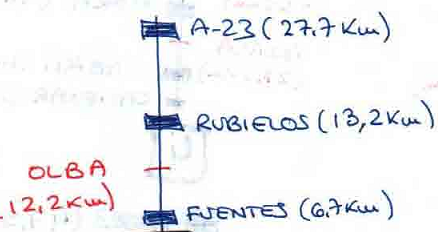 A-23 (27,7 Km)
RUBIELOS (13,2 Km)
OLBA
12,2 Km)
FUENTES (6,7 Km)